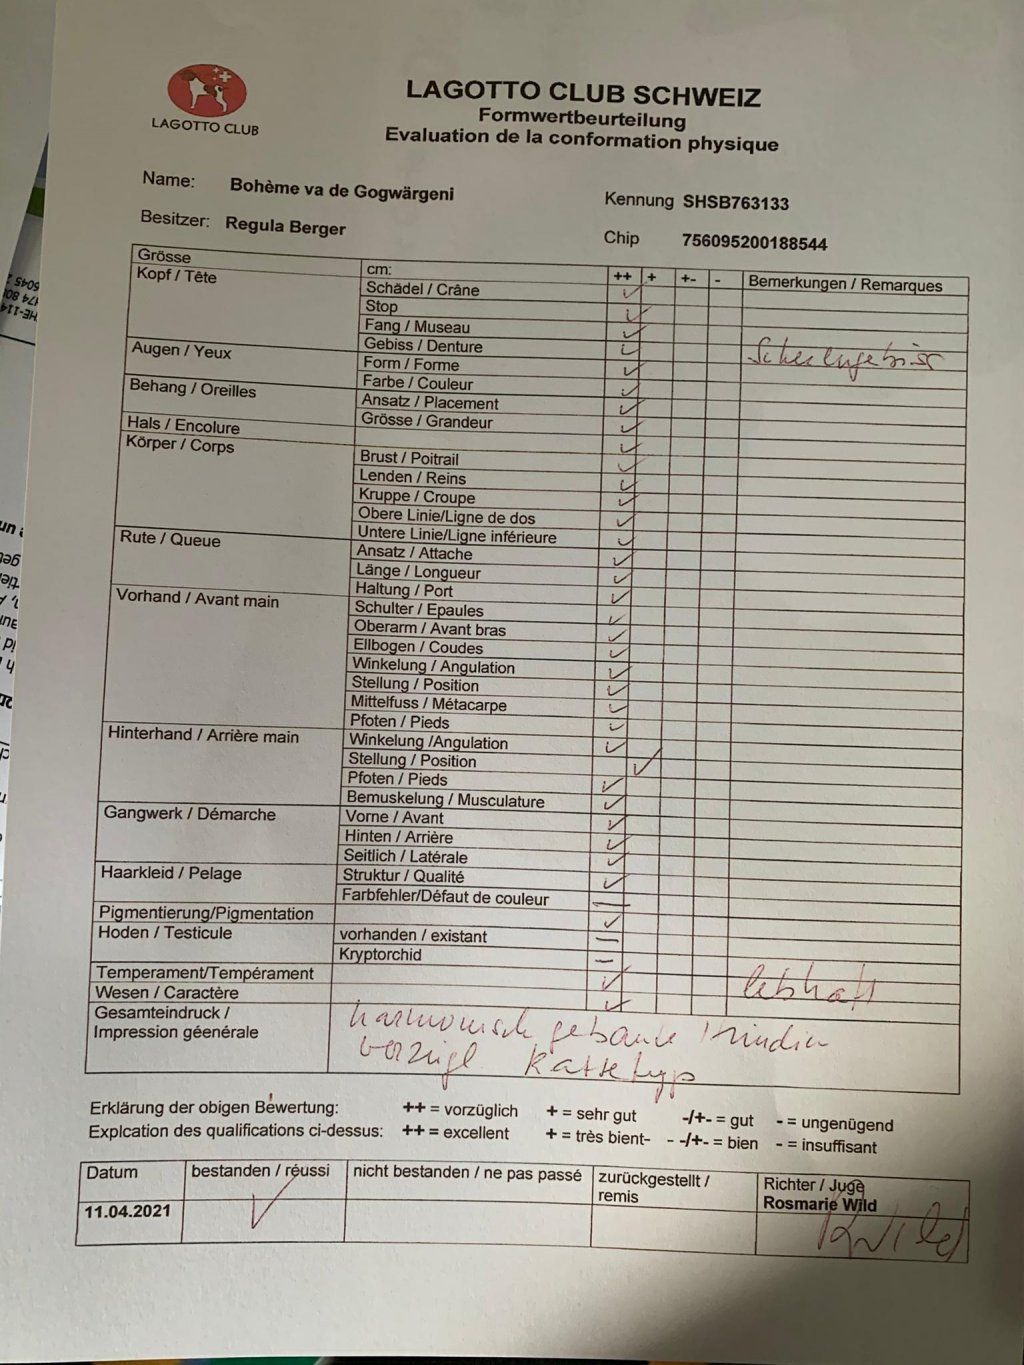 LAGOTTO CLUB
LAGOTTO CLUB SCHWEIZ
Formwertbeurteilung
Evaluation de la conformation physique
Name: Bohème va de Gogwärgeni
Kennung SHSB763133
Besitzer: Regula Berger
Chip 756095200188544
Grösse cm: ++ + +- - Bemerkungen / Remarques
Kopf / Tête Schädel / Crâne
Stop
Fang / Museau
Gebiss / Denture Scherengebiss
Augen / Yeux Form / Forme
Farbe / Couleur
Behang / Oreilles Ansatz / Placement
Grösse / Grandeur
Hals / Encolure
Körper / Corps Brust / Poitrail
Lenden / Reins
Kruppe / Croupe
Obere Linie/Ligne de dos
Untere Linie/Ligne inférieure
Rute / Queue Ansatz / Attache
Länge / Longueur
Haltung / Port
Vorhand / Avant main Schulter / Epaules
Oberarm / Avant bras
Ellbogen / Coudes
Winkelung / Angulation
Stellung / Position
Mittelfuss / Métacarpe
Pfoten / Pieds
Hinterhand / Arrière main Winkelung /Angulation
Stellung / Position
Pfoten / Pieds
Bemuskelung / Musculature
Gangwerk / Démarche Vorne / Avant
Hinten / Arrière
Seitlich / Latérale
Haarkleid / Pelage Struktur / Qualité
Farbfehler/Défaut de couleur
Pigmentierung/Pigmentation
Hoden / Testicule vorhanden / existant
Kryptorchid
Temperament/Tempérament lebhaft
Wesen / Caractère
Gesamteindruck / harmonisch gebaute Hündin
Impression géenérale vorzügl Rassetyp
Erklärung der obigen Bewertung: ++ = vorzüglich + = sehr gut -/+- = gut - = ungenügend
Explcation des qualifications ci-dessus: ++ = excellent + = très bient- - -/+- = bien - = insuffisant
Datum bestanden / réussi nicht bestanden / ne pas passé zurückgestellt / remis Richter / Juge
Rosmarie Wild
11.04.2021
RWild